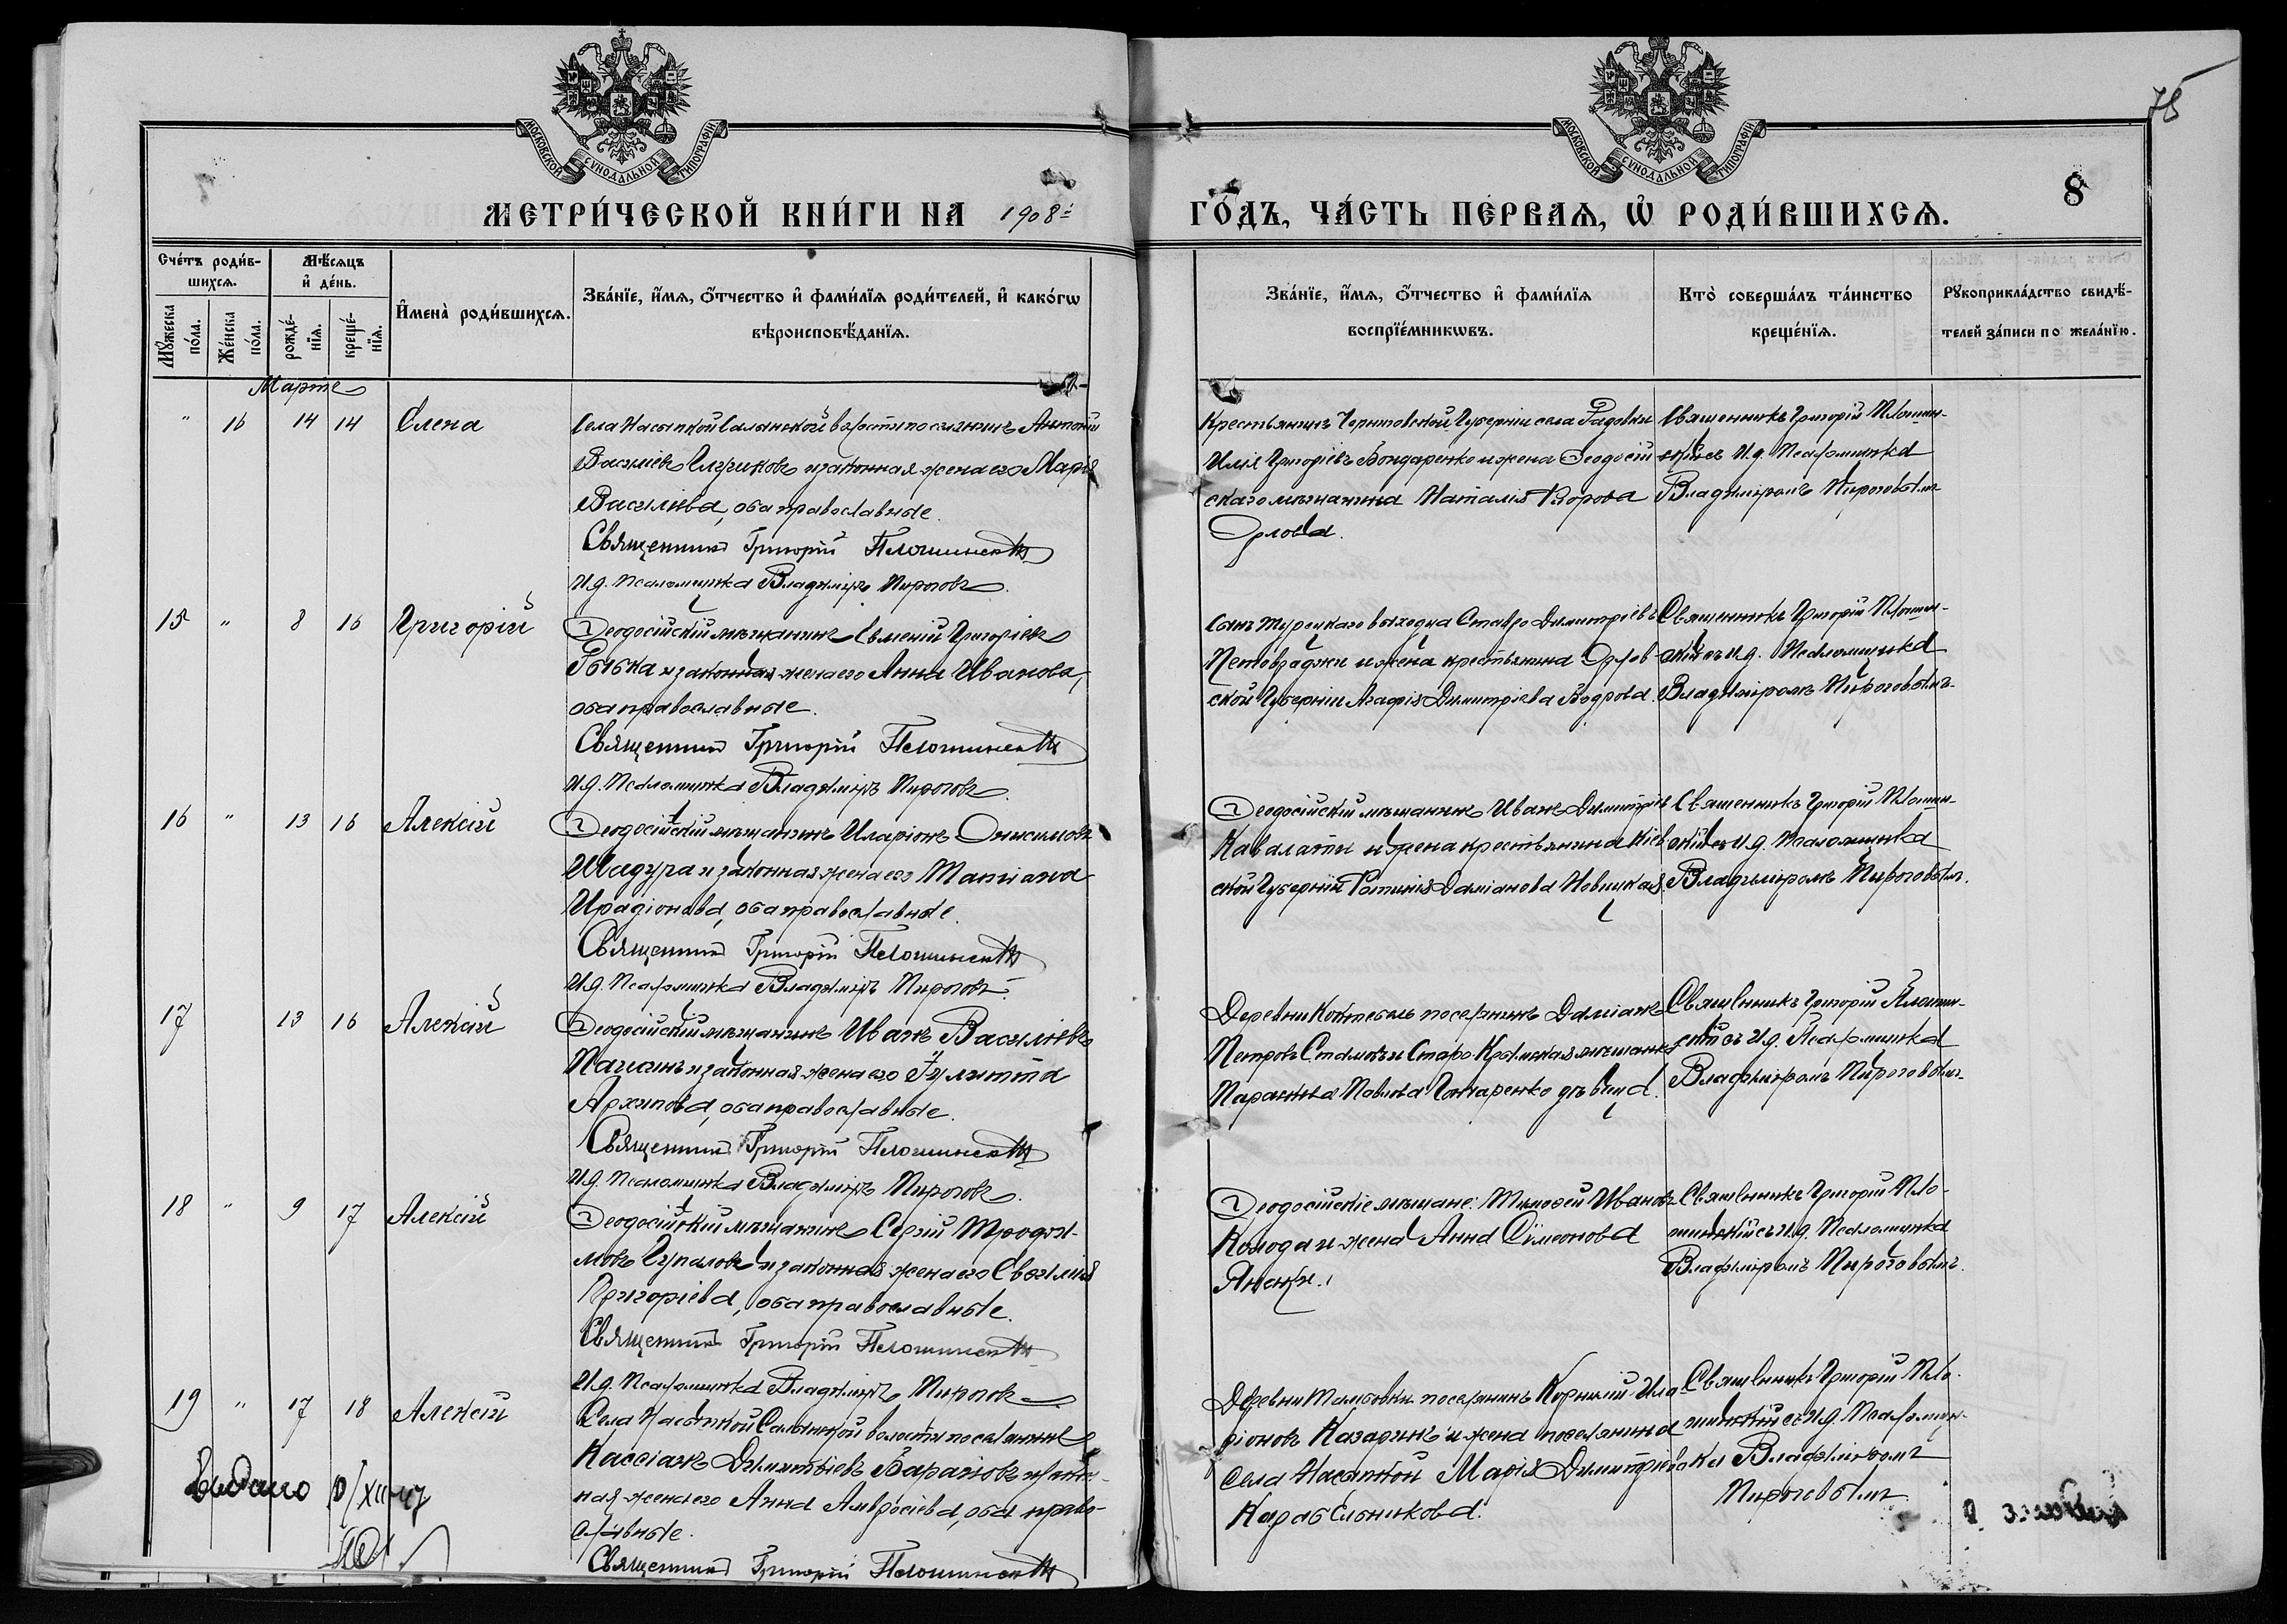 МОСКОВСКОЙ СѴНОДАЛЬНОЙ ТИПОГРАФІИ
МОСКОВСКОЙ СѴНОДАЛЬНОЙ ТИПОГРАФІИ
8
МЕТРИ́ЧЕСКОЙ КНИ́ГИ НА 1908 ГО́ДЪ, ЧА́СТЬ ПЕ́РВАѦ, Ѡ҆ РОДИ́ВШИХСѦ.
Сче́тъ роди́в-
шихсѧ.
Мꙋ́жеска по́ла.
Же́нска по́ла.
Мѣ́сѧцъ
и҆ де́нь.
рожде́-
нїѧ.
креще́-
нїѧ.
И҆мена̀ роди́вшихсѧ.
Зва́нїе, и҆́мѧ, ѻ҆́тчество и҆ фами́лїѧ роди́телей, и҆ како́гѡ
вѣроисповѣ́данїѧ.
Зва́нїе, и҆́мѧ, ѻ҆́тчество и҆ фами́лїѧ
воспрїе́мникѡвъ.
Кто̀ соверша́лъ та́инство
креще́нїѧ.
Рꙋкоприкла́дство свидѣ́-
телей за́писи по жела́нїю.
Марте
" 16 14 14 Елена
Села Насыпкой Салынской волости поселянинъ Антоній
Василіевъ и законная жена его Марія
Василіева, оба православные.
Священникъ Григорій
И.д. Псаломщика Владиміръ Пироговъ
Крестьянинъ Черниговской Губерніи села
Илія Григоріевъ Бондаренко и жена Ѳеодосій-
скаго мѣщанина Наталія
Орлова.
Священникъ Григорій
съ И.д. Псаломщика
Владиміромъ Пироговымъ
15 " 8 16 Григорій
Ѳеодосійскій мѣщанинъ Евменій Григоріевъ
и законная жена его Анна Иванова,
оба православные.
Священникъ Григорій
И.д. Псаломщика Владиміръ Пироговъ
Сынъ турецкаго выходца Ставро Димитріевъ
и жена крестьянина Орлов-
ской Губерніи Агафія Димитріева Бодрова.
Священникъ Григорій
съ И.д. Псаломщика
Владиміромъ Пироговымъ
16 " 13 16 Алексій
Ѳеодосійскій мѣщанинъ Иларіонъ Онисимовъ
Шадура и законная жена его Татіана
Иродіонова, оба православные.
Священникъ Григорій
И.д. Псаломщика Владиміръ Пироговъ
Ѳеодосійскій мѣщанинъ Иванъ Димитріевъ
Кавалати и жена крестьянина Кіев-
ской Губерніи Фотинія Даміанова Новицкая.
Священникъ Григорій
съ И.д. Псаломщика
Владиміромъ Пироговымъ.
17 13 16 Алексій
Ѳеодосійскій мѣщанинъ Иванъ Василіевъ
и законная жена его Іулитта
Архипова, оба православные.
Священникъ Григорій
И.д. Псаломщика Владиміръ Пироговъ.
Деревни Коктебель поселянинъ Даміанъ
Петровъ Стамовъ и Старо-Крымская мѣщанка
Павлова Гончаренко дѣвица.
Священникъ Григорій
съ И.д. Псаломщика
Владиміромъ Пироговымъ
18 " 9 17 Алексій
Ѳеодосійскій мѣщанинъ Сергій Трофи-
мовъ и законная жена его Евфимія
Григоріева, оба православные.
Священникъ Григорій
И.д. Псаломщика Владиміръ Пироговъ
Ѳеодосійскіе мѣщане: Тимофей Ивановъ
Колода и жена Анна Сѵмеонова
Священникъ Григорій
съ И.д. Псаломщика
Владиміромъ Пироговымъ.
19 " 17 18 Алексій
Села Насыпкой Салынской волости поселянинъ
Кассіанъ Димитріевъ и закон-
ная жена его Анна Амвросіева, оба право-
славные.
Священникъ Григорій
Деревни Тамбовки поселянинъ Корнилій Ила-
ріоновъ Казаринъ и жена поселянина
села Насыпкой Марія Димитріева
Священникъ Григорій
съ И.д. Псаломщи-
ка Владиміромъ
Пироговымъ
Видано XII 47